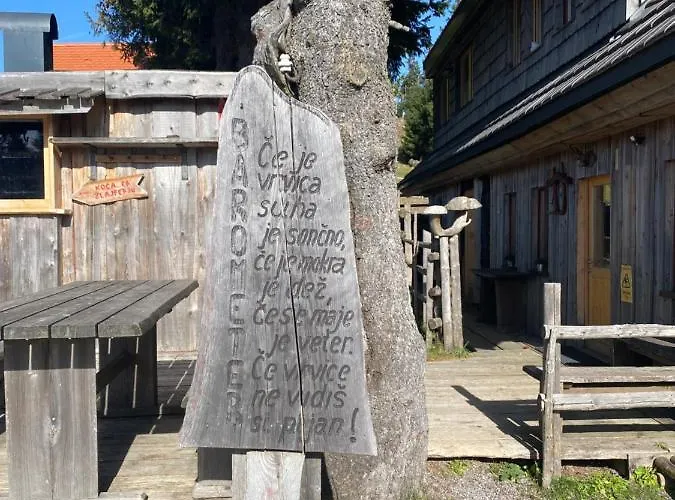 BAROMETER
Če je
vrvica
suha
je sončno,
če je mokra
je dež,
če se maje
je veter.
Če vrvice
ne vidiš
si pijan!
KOČA ČEZ